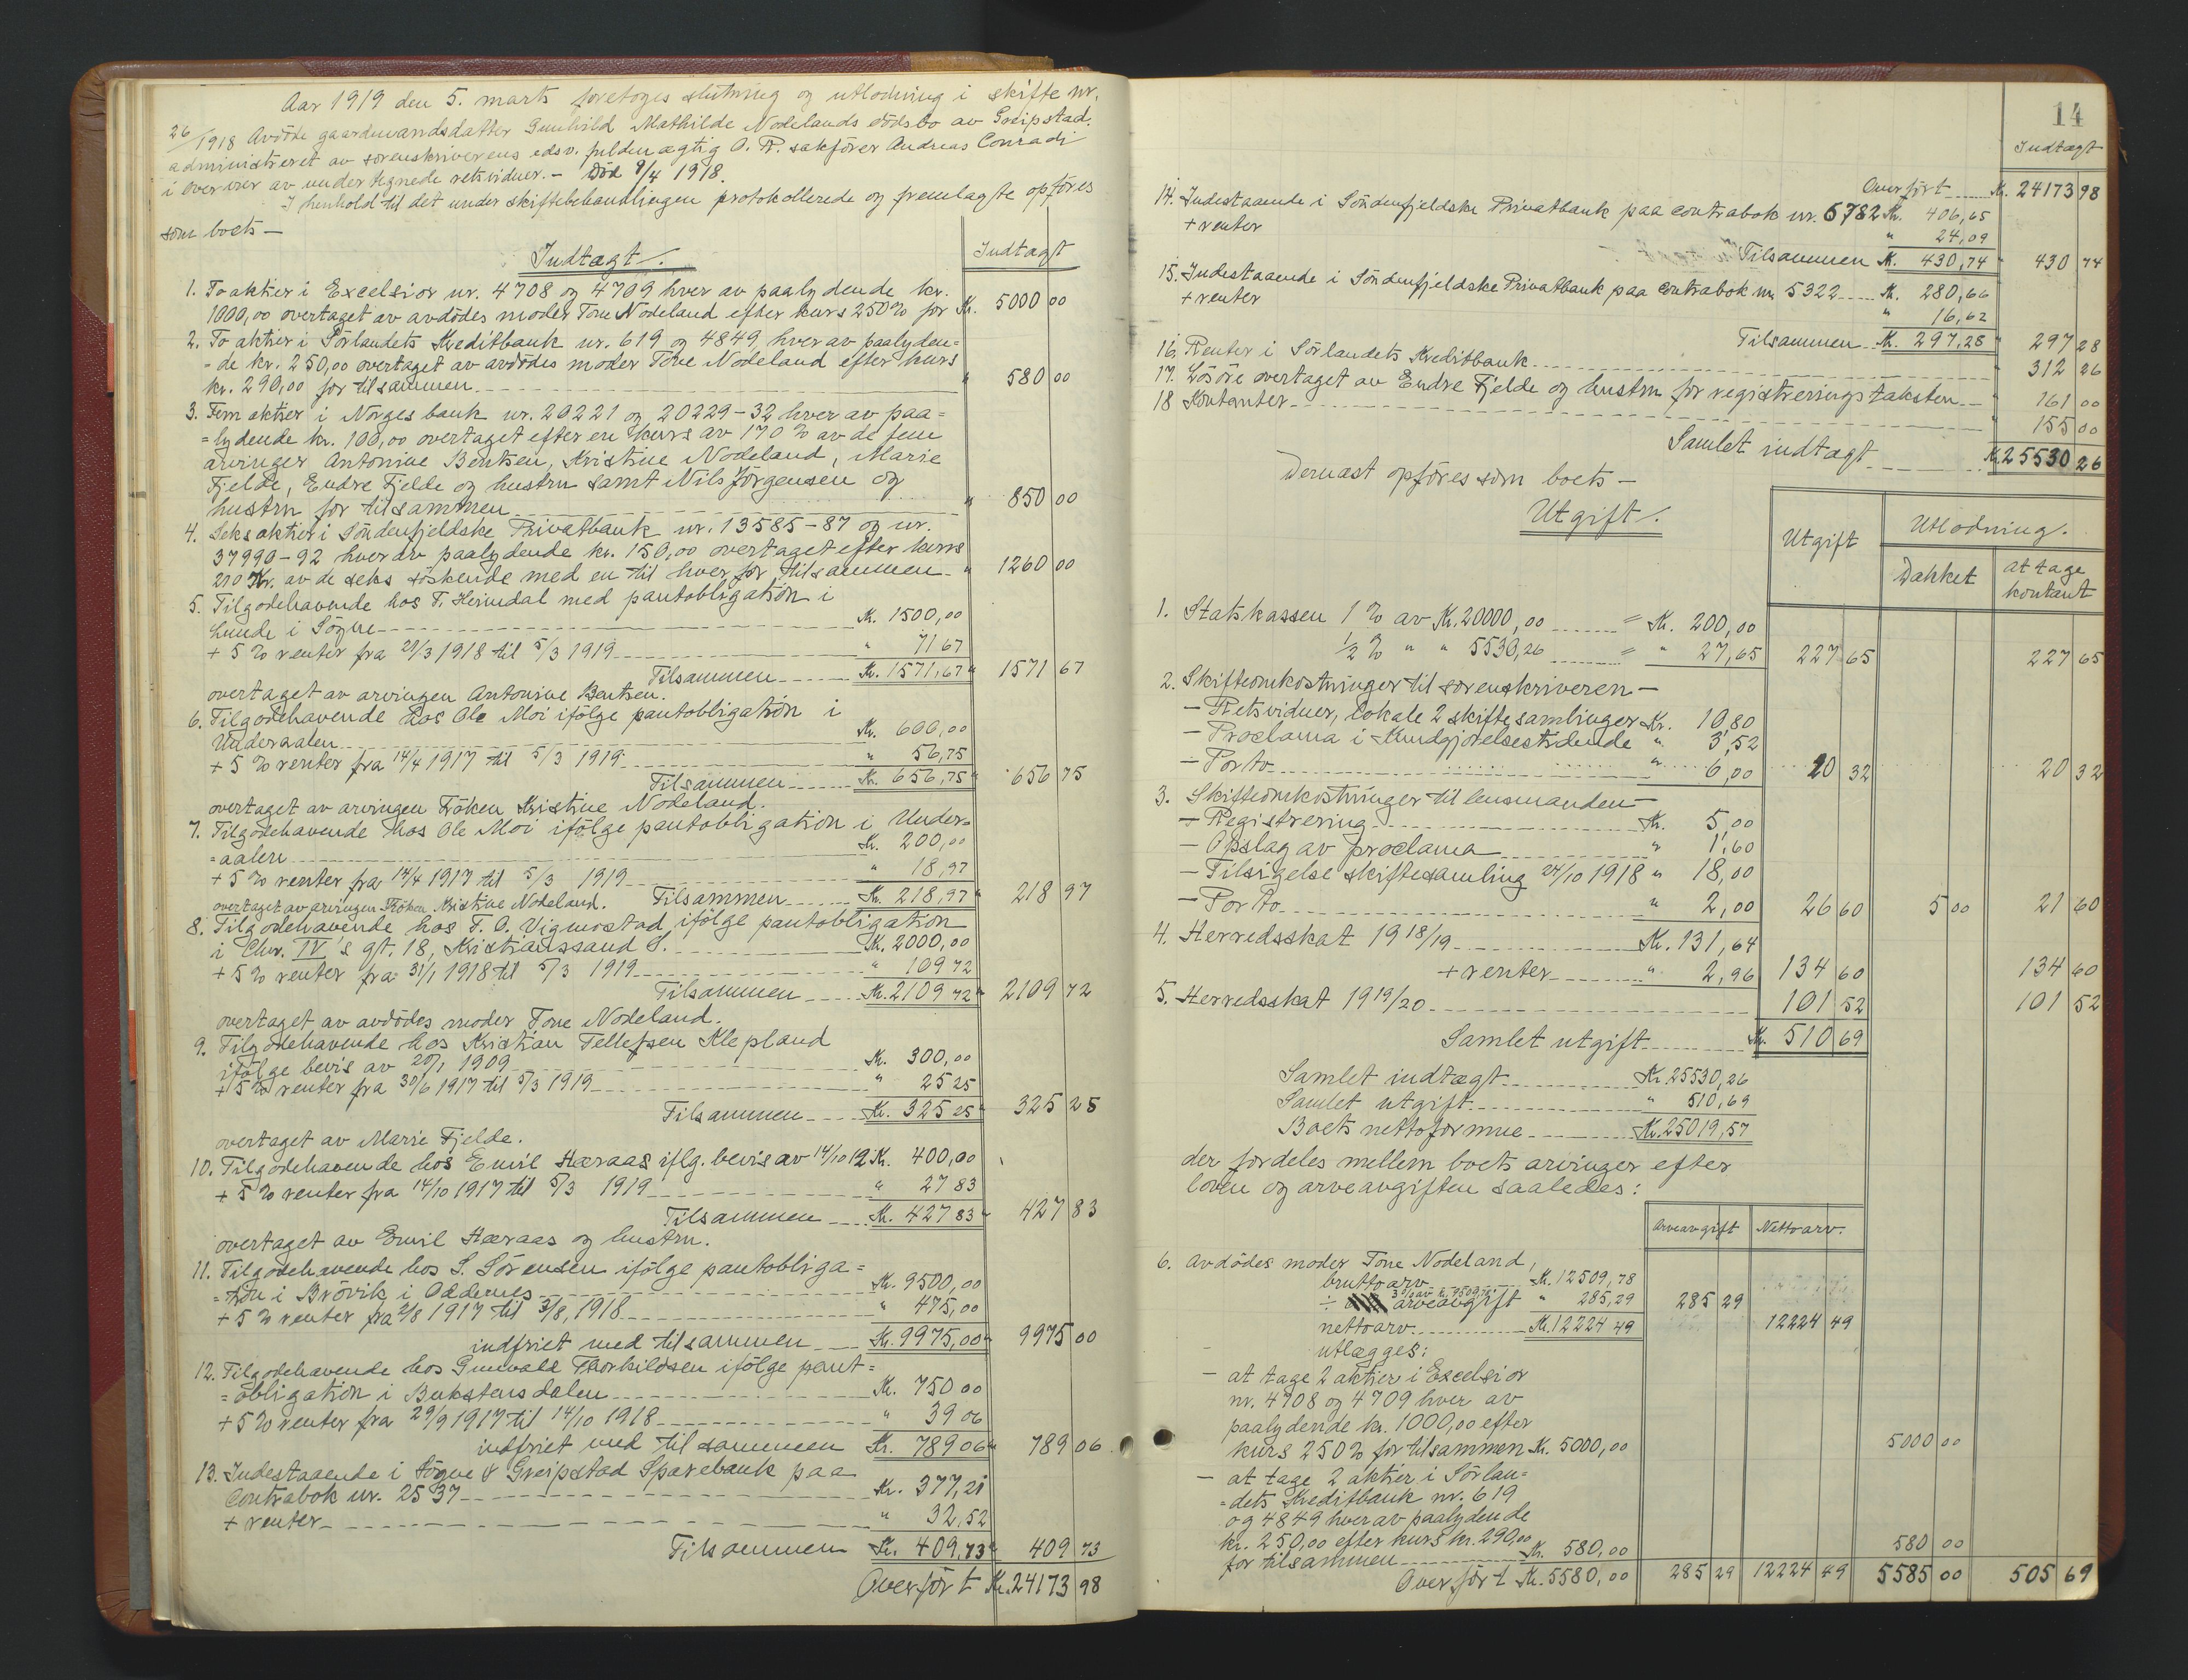 Aar 1919 den 5. marts foretoges slutning og utlodning i skifte nr.
26/1918 Avdöde gaardmandsdatter Gunhild Mathilde Nodelands dödsbo av Greipstad,
administreret av sorenskriverens edsv. fuldmægtig O. R. sakförer Andreas Conradi
i overvær av undertegnede retsvidner. – Död 9/4 1918.
I henhold til det under skiftebehandlingen protokollerede og fremlagte opföres
som boets —
Indtægt.
Indtægt
1. To aktier i Excelsior nr. 4708 og 4709 hver av paalydende kr.
1000,00 overtaget av avdödes moder Tone Nodeland efter kurs 250% for Kr. 5000 00
2. To aktier i Sörlandets Kreditbank nr. 619 og 4849, hver av paalyden=
=de kr. 250,00 overtaget av avdödes moder Tone Nodeland efter kurs
kr. 290,00 for tilsammen " 580 00
3. Fem aktier i Norges bank nr. 20221 og 20229-32 hver av paa=
=lydende kr. 100,00 overtaget efter en kurs av 170% av de fem
arvinger Antonine Bentsen, Kristine Nodeland, Marie
Fjelde, Endre Fjelde og hustru samt Nils Jörgensen og
hustru for tilsammen " 850 00
4. Seks aktier i Söndenfjeldske Privatbank nr. 13585-87 og nr.
37990-92 hver av paalydende kr. 150,00 overtaget efter kurs
210 Kr. av de seks söskende med en til hver for tilsammen " 1260 00
5. Tilgodehavende hos T. Heimdal med pantobligation i
Lunde i Sögne Kr. 1500,00
+ 5% renter fra 21/3 1918 til 5/3 1919 " 71 67
Tilsammen Kr. 1571,67 " 1571 67
overtaget av arvingen Antonine Bentsen.
6. Tilgodehavende hos Ole Moi ifölge pantobligation i
Underaalen Kr. 600,00
+ 5% renter fra 14/4 1917 til 5/3 1919 " 56,75
Tilsammen Kr. 656,75 " 656 75
overtaget av arvingen Fröken Kristine Nodeland.
7. Tilgodehavende hos Ole Moi ifölge pantobligation i Under=
=aalen Kr. 200,00
+ 5% renter fra 14/4 1917 til 5/3 1919 " 18,97
overtaget av arvingen Fröken Kristine Nodeland. Tilsammen Kr. 218,97 " 218 97
8. Tilgodehavende hos T. O. Vigmostad ifölge pantobligation
i Chr. IV's gt. 18, Kristianssand S. Kr. 2000,00
+ 5% renter fra 31/1 1918 til 5/3 1919 " 109 72
Tilsammen Kr. 2109 72 " 2109 72
overtaget av avdödes moder Tone Nodeland.
9. Tilgodehavende hos Kristian Tellefsen Klepland
ifölge bevis av 20/1 1909 Kr. 300,00
+ 5% renter fra 30/6 1917 til 5/3 1919 " 25 25
Tilsammen Kr. 325 25 " 325 25
overtaget av Marie Fjelde.
10. Tilgodehavende hos Emil Hæraas iflg. bevis av 14/10 12 Kr. 400,00
+ 5% renter fra 14/10 1917 til 5/3 1919 " 27 83
Tilsammen Kr. 427 83 " 427 83
overtaget av Emil Hæraas og hustru.
11. Tilgodehavende hos S. Sörensen ifölge pantobliga=
=tion i Brövik i Oddernes Kr. 9500,00
+ 5% renter fra 2/8 1917 til 2/8, 1918 " 475,00
indfriet med tilsammen Kr. 9975,00 " 9975 00
12. Tilgodehavende hos Gunvald Thorkildsen ifölge pant=
=obligation i Bukstensdalen Kr. 750 00
+ 5% renter fra 29/9 1917 til 14/10 1918 " 39 06
indfriet med tilsammen Kr. 789 06 " 789 06
13. Indestaaende i Sögne & Greipstad Sparebank paa
Contrabok nr. 2537 Kr. 377,21
+ renter " 32,52
Tilsammen Kr. 409,73 " 409 73
Overfört Kr. 24173 98
14
Indtægt
Overfört Kr. 24173 98
14. Indestaaende i Söndenfjeldske Privatbank paa contrabok nr. 6782 Kr. 406,65
+ renter " 24,09
Tilsammen Kr. 430,74 " 430 74
15. Indestaaende i Söndenfjeldske Privatbank paa Contrabok nr. 5322 Kr. 280,66
+ renter " 16,62
Tilsammen Kr. 297,28 " 297 28
16. Renter i Sörlandets Kreditbank " 312 26
17. Lösöre overtaget av Endre Fjelde og hustru for registreringstaksten " 161 00
18 Kontanter " 155 00
Samlet indtægt Kr. 25530 26
Dernæst opföres som boets —
Utgift.
Utgift
Utlodning.
Dækket
at tage kontant
1. Statskassen 1% av Kr. 20000,00 = Kr. 200,00
1/2% " " 5530,26 = " 27,65 227 65 227 65
2. Skifteomkostninger til sorenskriveren —
– Retsvidner, lokale 2 skiftesamlinger Kr. 10,80
– Proclama i Kundgjörelsestidende " 3,52
– Porto " 6,00 20 32 20 32
3. Skifteomkostninger til lensmanden —
– Registrering Kr. 5,00
– Opslag av proclama " 1,60
– Tilsigelse skiftesamling 24/10 1918 " 18,00
– Porto " 2,00 26 60 5 00 21 60
4. Herredsskat 1918/19 Kr. 131,64
+ renter " 2,96 134 60 134 60
5. Herredsskat 1919/20 101 52 101 52
Samlet utgift Kr. 510 69
Samlet indtægt Kr. 25530,26
Samlet utgift " 510,69
Boets nettoformue Kr. 25019,57
der fordeles mellem boets arvinger efter
loven og arveavgiften saaledes:
Arveavgift Nettoarv.
6. Avdödes moder Tone Nodeland,
bruttoarv Kr. 12509,78
3% av k. 9509,78
÷ arveavgift " 285,29 285 29
nettoarv Kr. 12224 49 12224 49
utlægges:
– at tage 2 aktier i Excelsior
nr. 4708 og 4709 hver av
paalydende kr. 1000,00 efter
kurs 250% for tilsammen Kr. 5000,00 5000 00
– at tage 2 aktier i Sörlan=
=dets Kreditbank nr. 619
og 4849 hver av paalydende
kr. 250,00 efter kurs kr. 290,00
for tilsammen Kr. 580,00 580 00
Overfört Kr. 5580,00 285 29 12224 49 5585 00 505 69